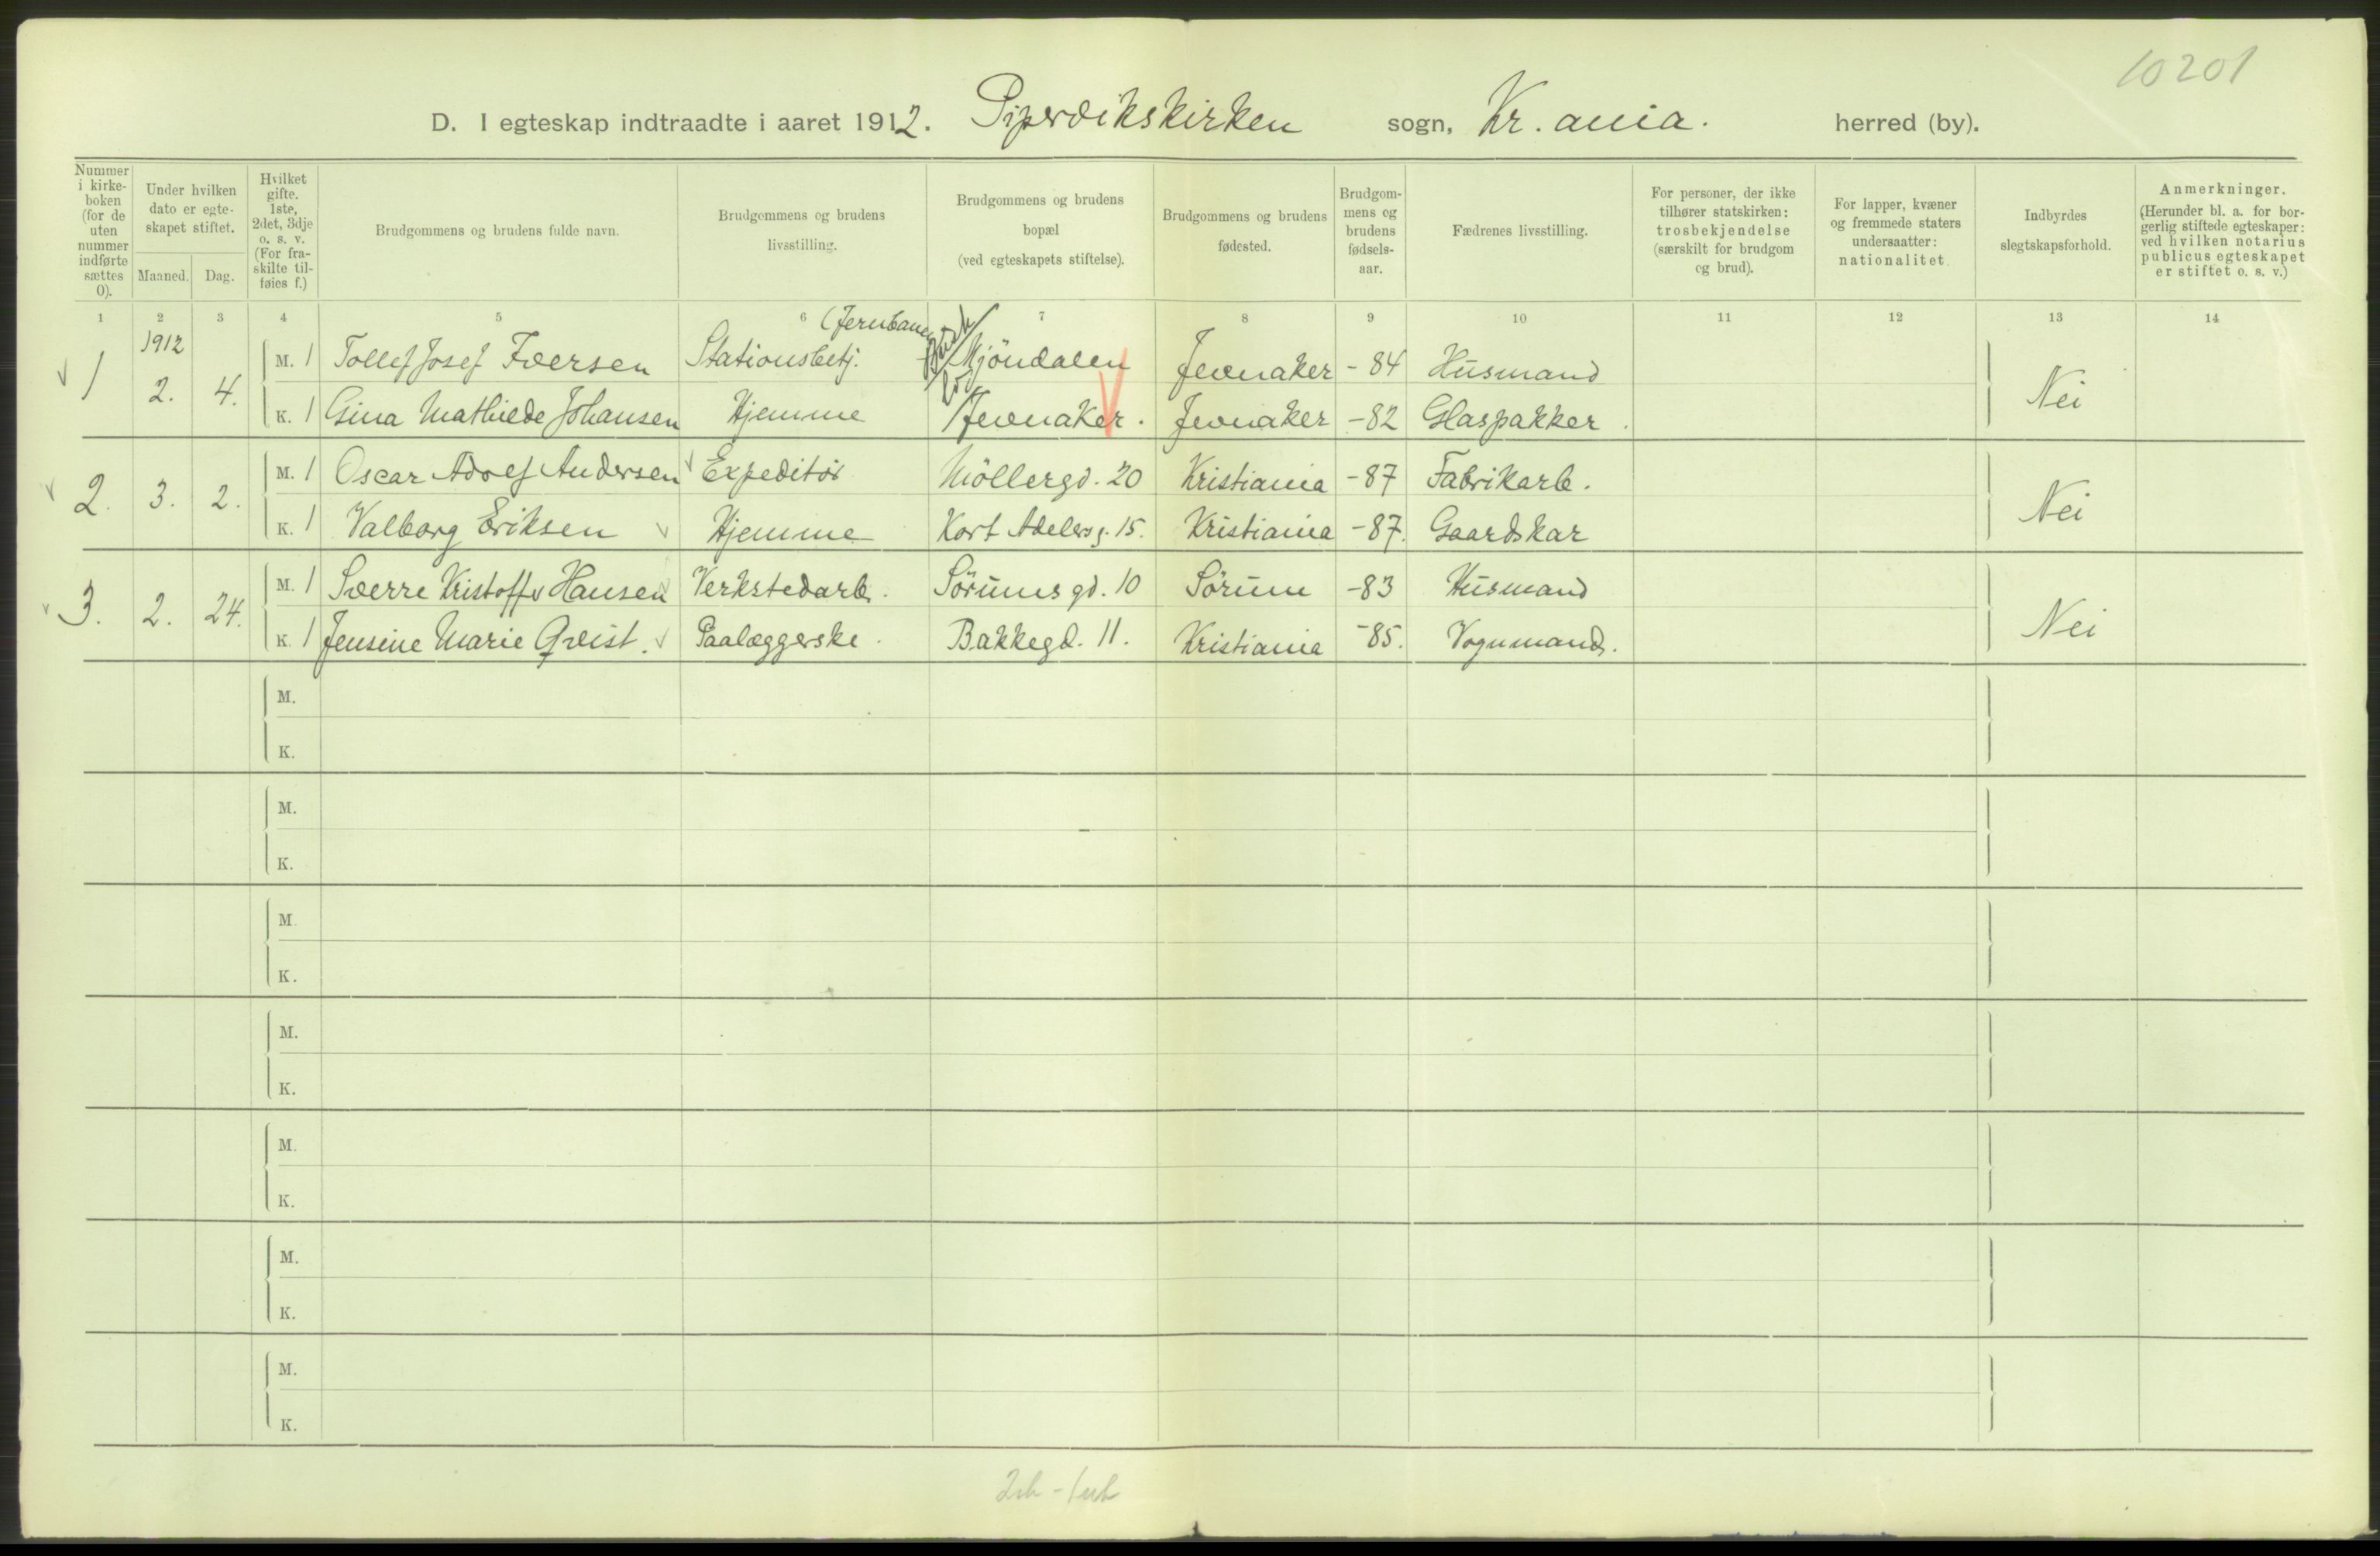 10201
D. I egteskap indtraadte i aaret 1912. Pipervikskirken sogn, Kr.ania. herred (by).
Nummer i kirke-boken (for de uten nummer indførte sættes 0). Under hvilken dato er egte-skapet stiftet. Maaned. Dag. Hvilket gifte. 1ste, 2det, 3dje o. s. v. (For fra-skilte til-føies f.) Brudgommens og brudens fulde navn. Brudgommens og brudens livsstilling. Brudgommens og brudens bopæl (ved egteskapets stiftelse). Brudgommens og brudens fødested. Brudgom-mens og brudens fødsels-aar. Fædrenes livsstilling. For personer, der ikke tilhører statskirken: trosbekjendelse (særskilt for brudgom og brud). For lapper, kvæner og fremmede staters undersaatter: nationalitet Indbyrdes slegtskapsforhold. Anmerkninger. (Herunder bl. a. for bor-gerlig stiftede egteskaper: ved hvilken notarius publicus egteskapet er stiftet o. s. v.)
1 2 3 4 5 6 7 8 9 10 11 12 13 14
1912 (Jernbane
1 2. 4. M. 1 Tollef Josef Iversen Stationsbetj. Mjöndalen Jevnaker - 84 Husmand Nei
K. 1 Gina Mathilde Johansen Hjemme Jevnaker. Jevnaker - 82 Glaspakker.
2. 3. 2. M. 1 Oscar Adolf Andersen Expeditör Möllergd. 20 Kristiania - 87 Fabrikarb. Nei
K. 1 Valborg Eriksen Hjemme Kort Adelersg. 15. Kristiania - 87. Gaardskar
3. 2. 24. M. 1 Sverre Kristoffer Hansen Verkstedarb. Sörumsgd. 10 Sörum -83 Husmand Nei
K. 1 Jensine Marie Qvist. Paalæggerske. Bakkegd. 11. Kristiania -85. Vognmand.
M.
K.
M.
K.
M.
K.
M.
K.
M.
K.
M.
K.
M.
K.